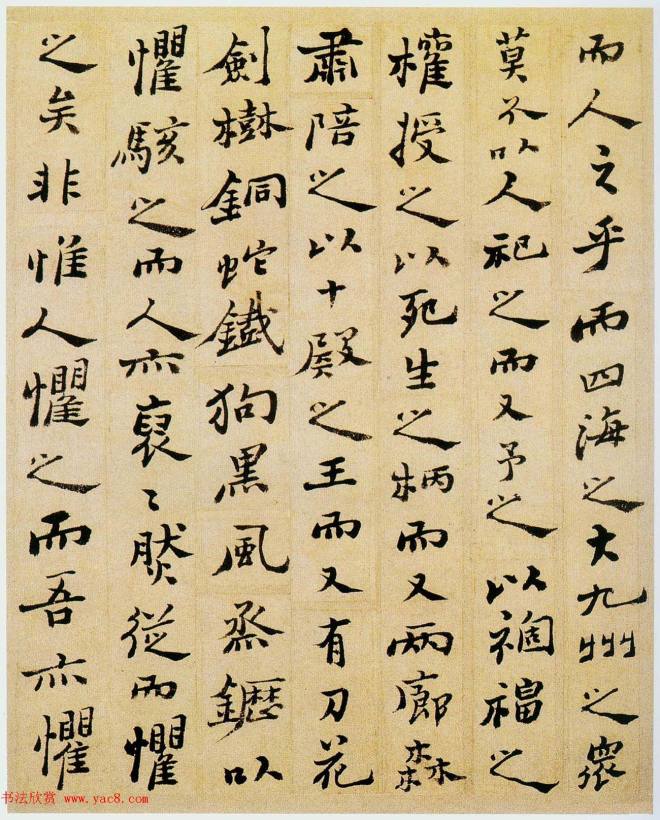 而人之乎而四海之大九州之衆
莫不以人祀之而又予之以禍福之
權授之以死生之柄而又兩廊森
肅陪之以十殿之王而又有刀花
劍樹銅蛇鐵狗黑風烝䥶以
懼駭之而人亦裒〻然從而懼
之矣非惟人懼之而吾亦懼
书法欣赏 www.yac8.com